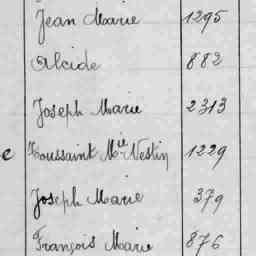 Jean Marie 1295
Alcide 882
Joseph Marie 2313
e Toussaint Mie Nestin 1229
Joseph Marie 379
François Marie 876